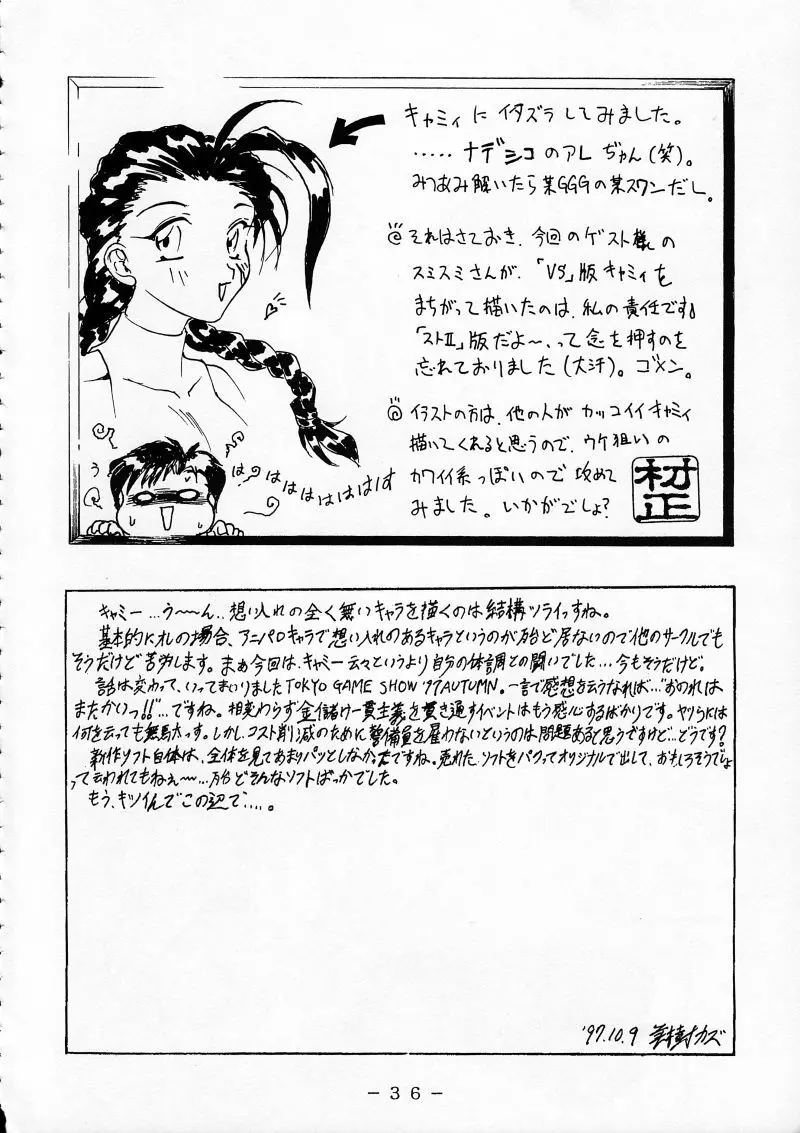 キャミィに イタズラ してみました。
‥‥‥ナデシコのアレぢゃん(笑)。
みつあみ解いたら某GGGの某スワンだし。
それはさておき、今回のゲスト様の
スミスミさんが、「VS」版キャミィを
まちがって描いたのは、私の責任です。
「ストⅡ」版だよ〜、って念を押すのを
忘れておりました(大汗)。ゴメン。
イラストの方は、他の人が カッコイイ キャミィ
描いてくれると思うので、ウケ狙いの
カワイイ系っぽいので 攻めて
みました。いかがでしょ?
村正
う
はははははははす
キャミー…う〜〜ん…想い入れの全く無いキャラを描くのは結構ツライっすね。
基本的にオレの場合、アニパロのキャラで想い入れのあるキャラというのが殆ど居ないので他のサークルでも
そうだけど苦労します。まぁ今回は、キャミー云々というより自分の体調との闘いでした…今もそうだけど。
話は変わって、いってまいりましたTOKYO GAME SHOW '97 AUTUMN。一言で感想を云うなれば…"おのれは
またかいっ!!"…ですね。相変わらず金儲け一貫主義を貫き通すイベントはもう感心するばかりです。ヤツらには
何を云っても無駄っす。しかし、コスト削減のために警備員を雇わないというのは問題あると思うですけど…どうです?
新作ソフト自体は、全体を見てあまりパッとしなかったですね。売れたソフトをパクってオリジナルで出して、おもしろそうでしょ
って云われてもねぇ〜〜…殆どそんなソフトばっかでした。
もう、キツイんでこの辺で…。
'97.10.9
カズ
- 36 -